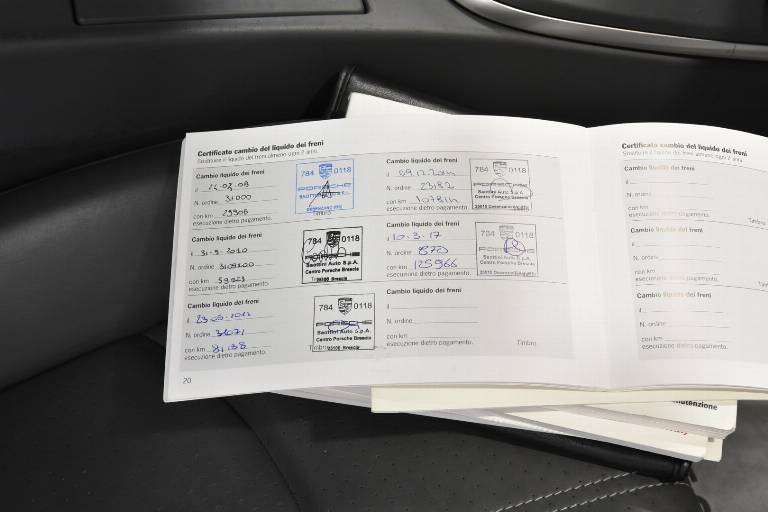 Certificato cambio del liquido dei freni
Sostituire il liquido dei freni almeno ogni 2 anni.
Cambio liquido dei freni
il
N. ordine 31000
con km 29306
esecuzione dietro pagamento.
784 0118
PORSCHE
Timbro
Cambio liquido dei freni
il 31-5-2010
N. ordine
con km
esecuzione dietro pagamento.
784 0118
Santini Auto S.p.A.
Centro Porsche Brescia
Cambio liquido dei freni
il
N. ordine
con km 81.138
esecuzione dietro pagamento.
784 0118
PORSCHE
Santini Auto S.p.A.
Centro Porsche Brescia
Timbro
20
Cambio liquido dei freni
il
N. ordine 23182
con km
esecuzione dietro pagamento.
784 0118
PORSCHE
Santini Auto S.p.A.
Centro Porsche Brescia
Cambio liquido dei freni
il 10-3-17
N. ordine 870
con km 125966
esecuzione dietro pagamento.
784 0118
Santini Auto S.p.A.
Centro Porsche Brescia
Cambio liquido dei freni
il
N. ordine
con km
esecuzione dietro pagamento.
Timbro
Certificato cambio del liquido dei freni
Sostituire il liquido dei freni almeno ogni 2 anni.
Cambio liquido dei freni
il
N. ordine
con km
esecuzione dietro pagamento.
Timbro
Cambio liquido dei freni
il
N. ordine
con km
esecuzione dietro pagamento.
Cambio liquido dei freni
il
N. ordine
con km
esecuzione dietro pagamento.